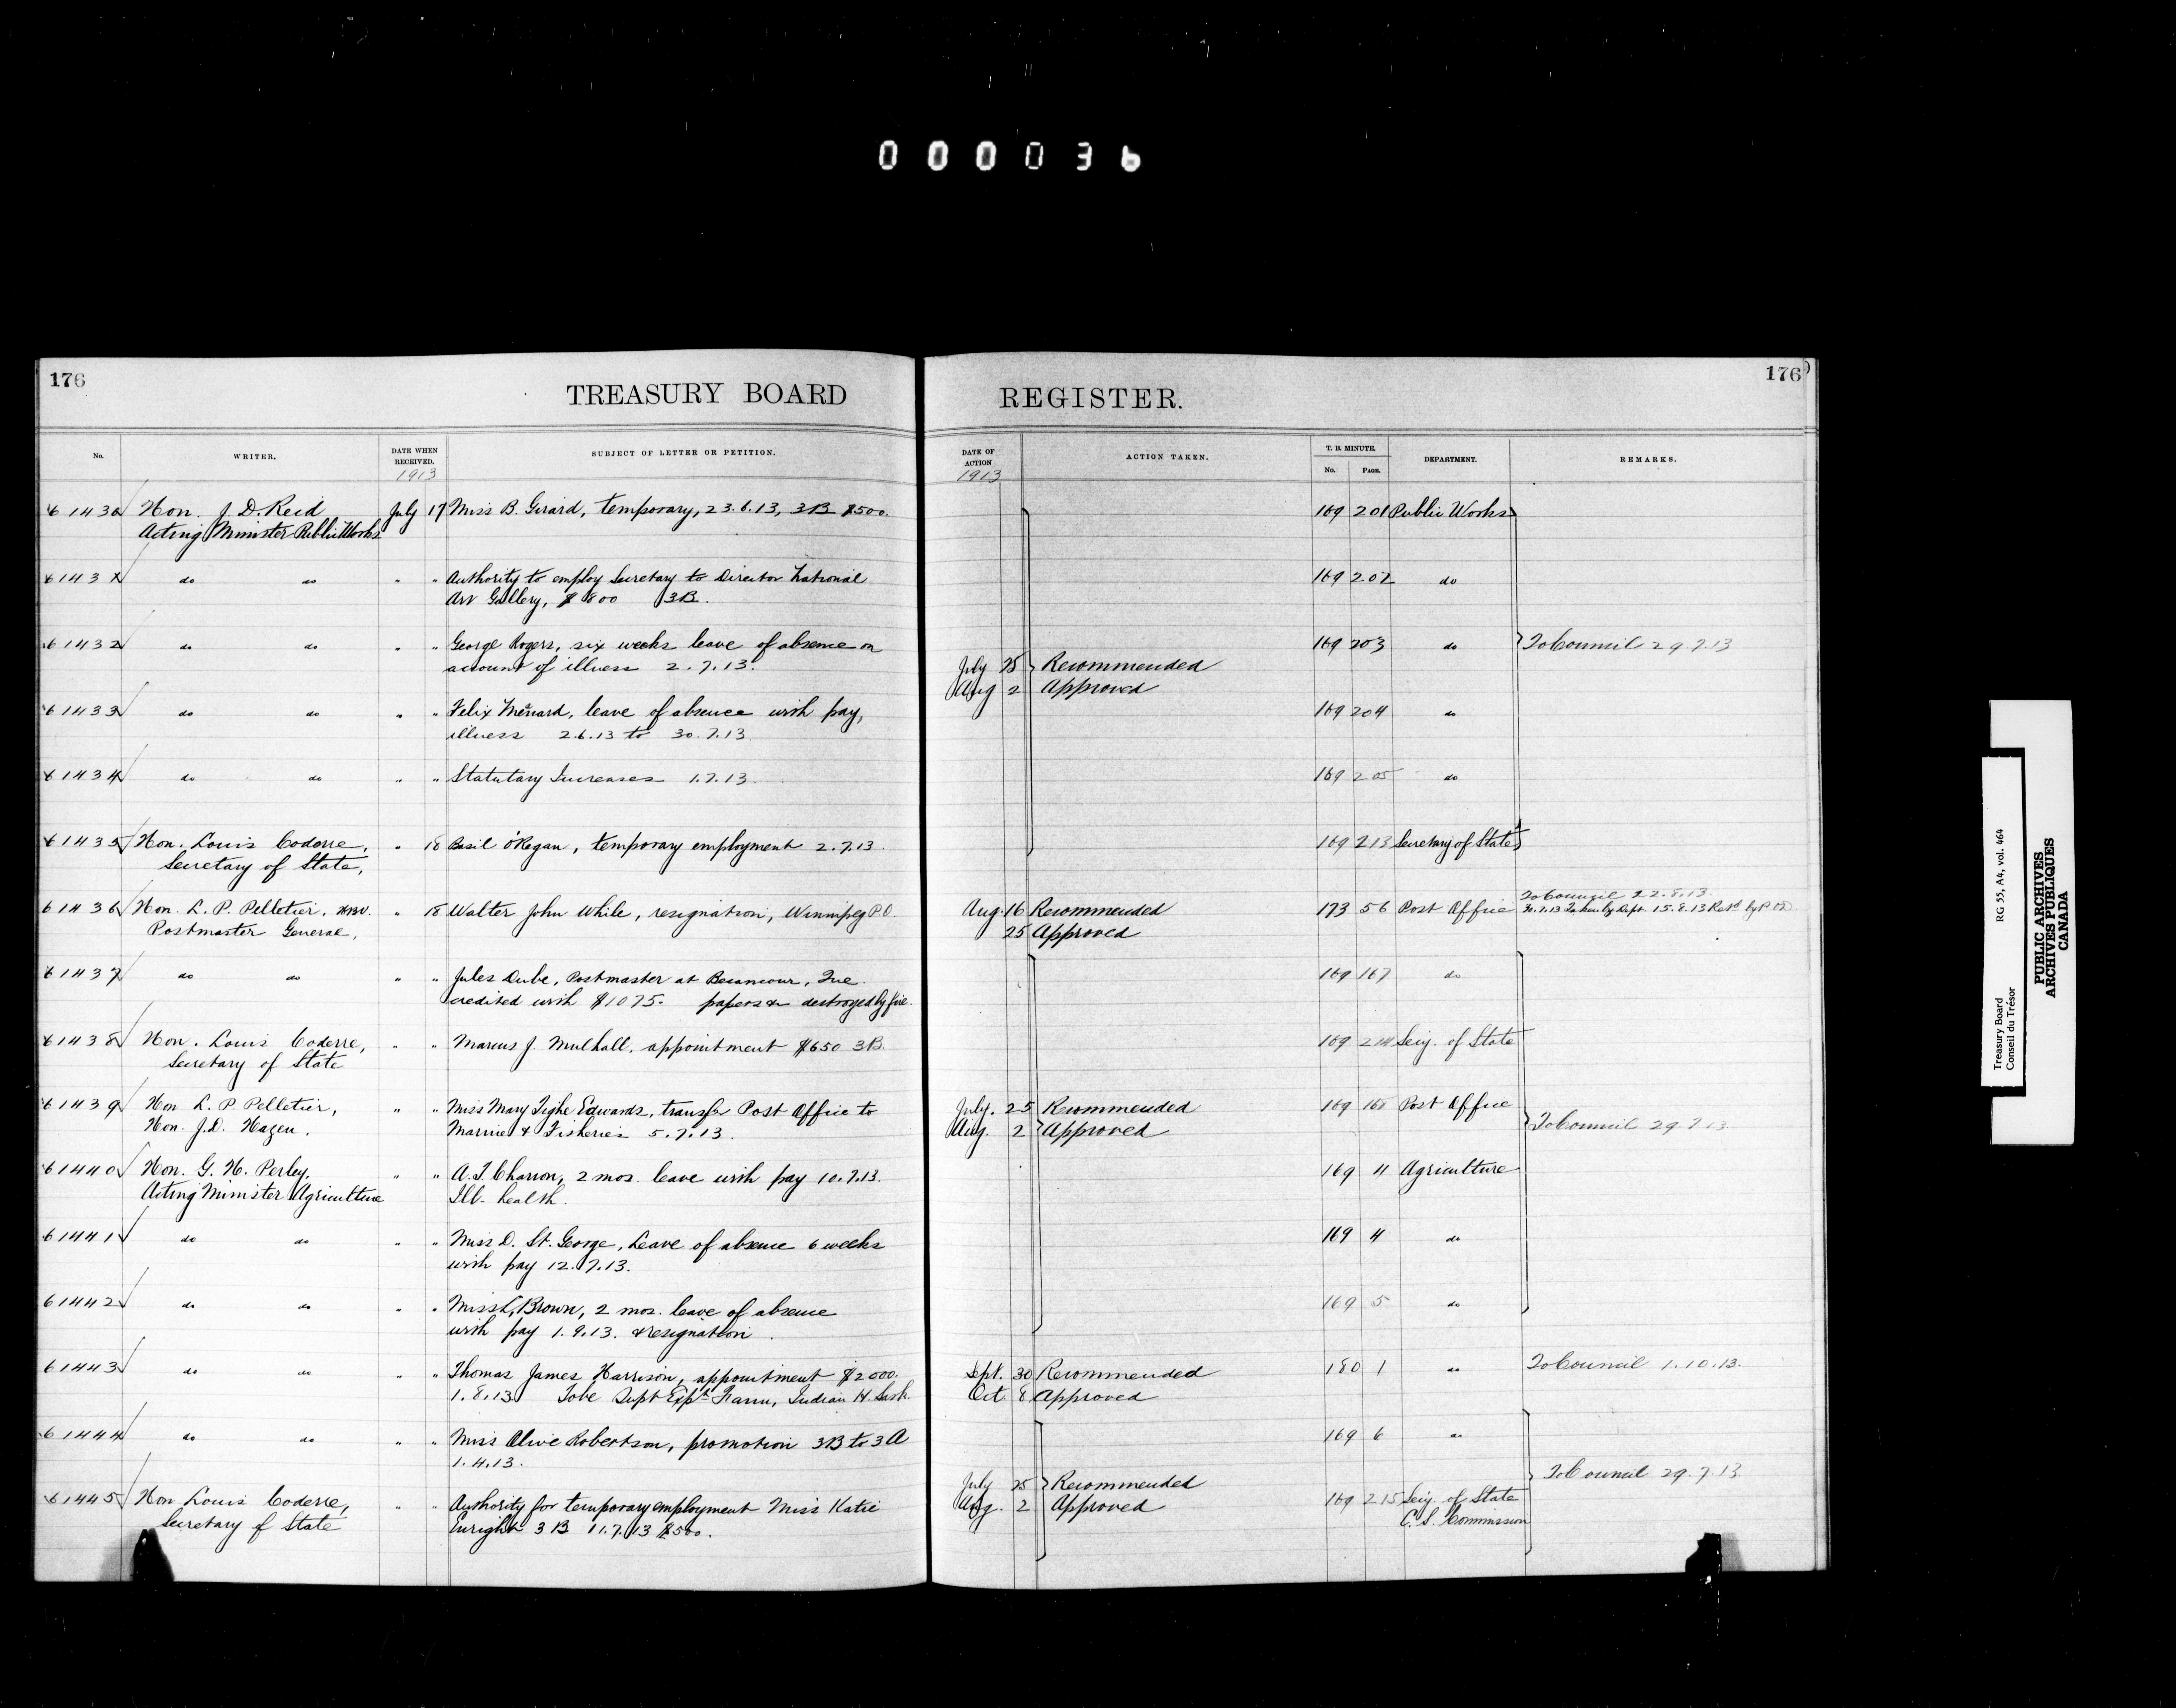 000036
176
TREASURY BOARD REGISTER.
176
No. WRITER. DATE WHEN RECEIVED. SUBJECT OF LETTER OR PETITION. DATE OF ACTION ACTION TAKEN. T. B. MINUTE. No. PAGE. DEPARTMENT. REMARKS.
1913 1913
61430 Hon. J. D. Reid July 17 Miss B. Girard, temporary, 23.6.13, 3B $500. 169 201 Public Works
Acting Minister Public Works
6143 do do " " Authority to employ Secretary to Director National 169 202 do
Art Gallery, $800 3B.
61432 do do " " George Rogers, six weeks leave of absence on 169 203 do To Council 29.7.13
account of illness 2.7.13. July 25 Recommended
Aug 2 Approved
61433 do do " " Felix Menard, leave of absence with pay, 169 204 do
illness 2.6.13 to 30.7.13
61434 do do " " Statutary Increases 1.7.13. 169 205 do
61435 Hon. Louis Coderre, " 18 Basil O'Regan, temporary employment 2.7.13. 169 213 Secretary of State
Secretary of State,
61436 Hon. L. P. Pelletier, " 18 Walter John While, resignation, Winnipeg P.O. Aug. 16 Recommended 173 56 Post Office To Council 22.8.13.
30.7.13 Taken by Dept. 15.8.13 Retd by P.O.D.
Postmaster General, 25 Approved
61437 do do " " Jules Dube, Postmaster at Becancour, Que. 169 167 do
credited with $10.75. papers &c destroyed by fire.
61438 Hon. Louis Coderre, " " Marcus J. Mulhall, appointment $650 3B. 169 214 Secy. of State
Secretary of State
61439 Hon L. P. Pelletier, " " Miss Mary Tighe Edwards, transfer Post Office to July. 25 Recommended 169 168 Post Office
Hon. J.D. Hazen. Marine & Fisheries 5.7.13. Aug. 2 Approved To Council 29.7.13
61440 Hon. G. H. Perley, " " A. T. Charron, 2 mos. leave with pay 10.7.13. 169 11 Agriculture
Acting Minister Agriculture Ill- health.
61441 do do " " Miss D. St. George, Leave of absence 6 weeks 169 4 do
with pay 12.7.13.
61442 do do " " Miss L. Brown, 2 mos. leave of absence 169 5 do
with pay 1.9.13. & resignation.
61443 do do " " Thomas James Harrison, appointment $2000. Sept. 30 Recommended 180 1 do To Council 1.10.13.
1.8.13. To be Supt Expl Farm, Indian H. Sask. Oct. 8 Approved
61444 do do " " Miss Olive Robertson, promotion 3B to 3A 169 6 do
1.4.13.
July 25 Recommended To Council 29.7.13
61445 Hon Louis Coderre, " " Authority for temporary employment Miss Katie Aug. 2 Approved 169 215 Secy. of State
Secretary of State Enright 3B 11.7.13 $500. C. S. Commission
Treasury Board RG 55, A4, vol. 464
Conseil du Trésor
PUBLIC ARCHIVES
ARCHIVES PUBLIQUES
CANADA